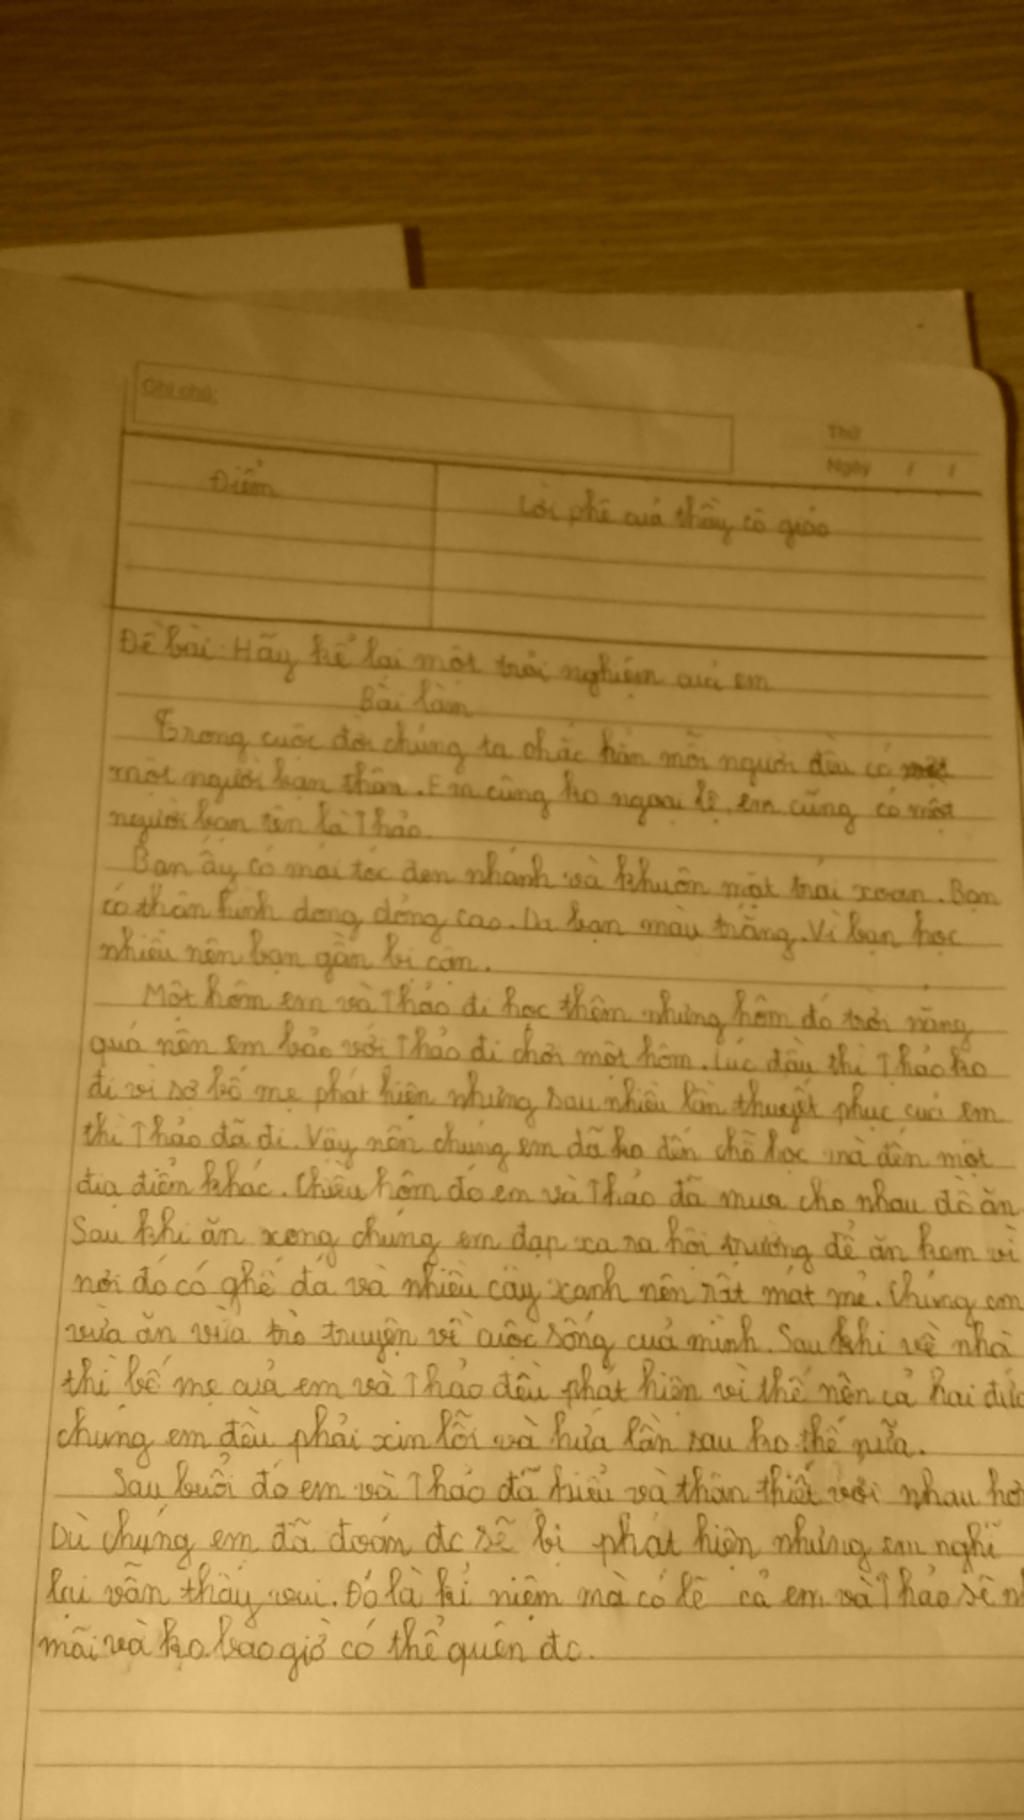 Ghi chú:
Thứ
Ngày / /
Điểm
Lời phê cuả thầy cô giáo
Đề bài: Hãy kể lại một trải nghiệm cuả em
Bài làm
Trong cuộc đời chúng ta chắc hẳn mỗi người đều có
một người bạn thân. Em cũng ko ngoại lệ, em cũng có một
người bạn tên là Thảo.
Bạn ấy có mái tóc đen nhánh và khuôn mặt trái xoan. Bạn
có thân hình dong dỏng cao. Da bạn màu trắng. Vì bạn học
nhiều nên bạn gần bị cận.
Một hôm em và Thảo đi học thêm nhưng hôm đó trời nắng
quá nên em bảo với Thảo đi chơi một hôm. Lúc đầu thì Thảo ko
đi vì sợ bố mẹ phát hiện nhưng sau nhiều lần thuyết phục cuả em
thì Thảo đã đi. Vậy nên chúng em đã ko đến chỗ học mà đến một
địa điểm khác. Chiều hôm đó em và Thảo đã mua cho nhau đồ ăn
Sau khi ăn xong chúng em đạp xa ra hội trường để ăn kem vì
nơi đó có ghế đá và nhiều cây xanh nên rất mát mẻ. Chúng em
vừa ăn vừa trò truyện về cuộc sống cuả mình. Sau khi về nhà
thì bố mẹ cuả em và Thảo đều phát hiện vì thế nên cả hai đứa
chúng em đều phải xin lỗi và hứa lần sau ko thế nữa.
Sau buổi đó em và Thảo đã hiểu và thân thiết với nhau hơn
Dù chúng em đã đoán đc sẽ bị phát hiện nhưng em nghĩ
lại vẫn thấy vui. Đó là kỉ niệm mà có lẽ cả em và Thảo sẽ
mãi và ko bao giờ có thể quên đc.